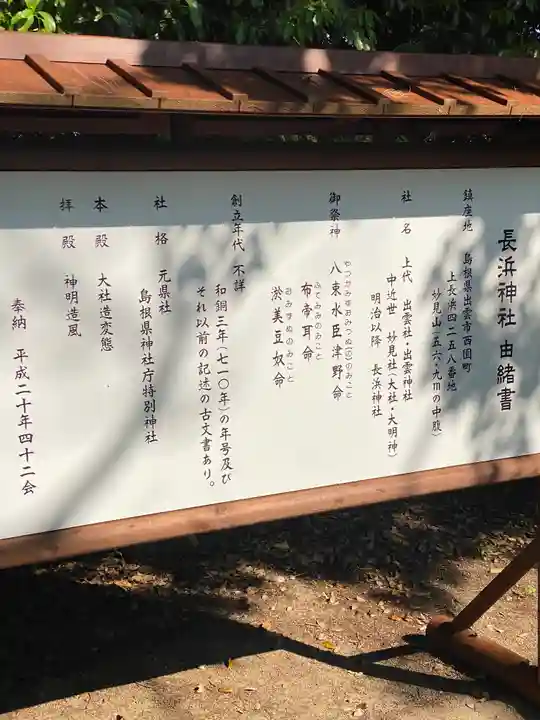 長浜神社 由緒書
鎮座地 島根県出雲市西園町
上長浜四二五八番地
妙見山(五六・九mの中腹)
社名 上代 出雲社・出雲神社
中近世 妙見社(大社・大明神)
明治以降 長浜神社
御祭神 八束水臣津野命
やつかみずおみつぬ(の)のみこと
布帝耳命
ふてみみのみこと
淤美豆奴命
おみずぬのみこと
創立年代 不詳
和銅三年(七一〇年)の年号及び
それ以前の記述の古文書あり。
社格 元県社
島根県神社庁特別神社
本殿 大社造変態
拝殿 神明造風
奉納 平成二十年四十二会